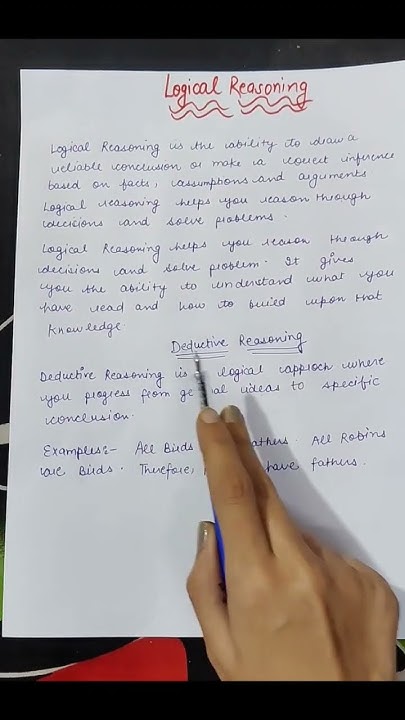 Logical Reasoning
Logical Reasoning is the ability to draw a
reliable conclusion or make a correct inference
based on facts, assumptions and arguments
Logical reasoning helps you reason through
decisions and solve problems.
Logical Reasoning helps you reason through
decisions and solve problem. It gives
you the ability to understand what you
have read and how to build upon that
knowledge.
Deductive Reasoning
Deductive Reasoning is logical approch where
you progress from ideas to specific
conclusion.
Examples:- All Birds fathers. All Robins
are Birds. Therefore, have fathers.